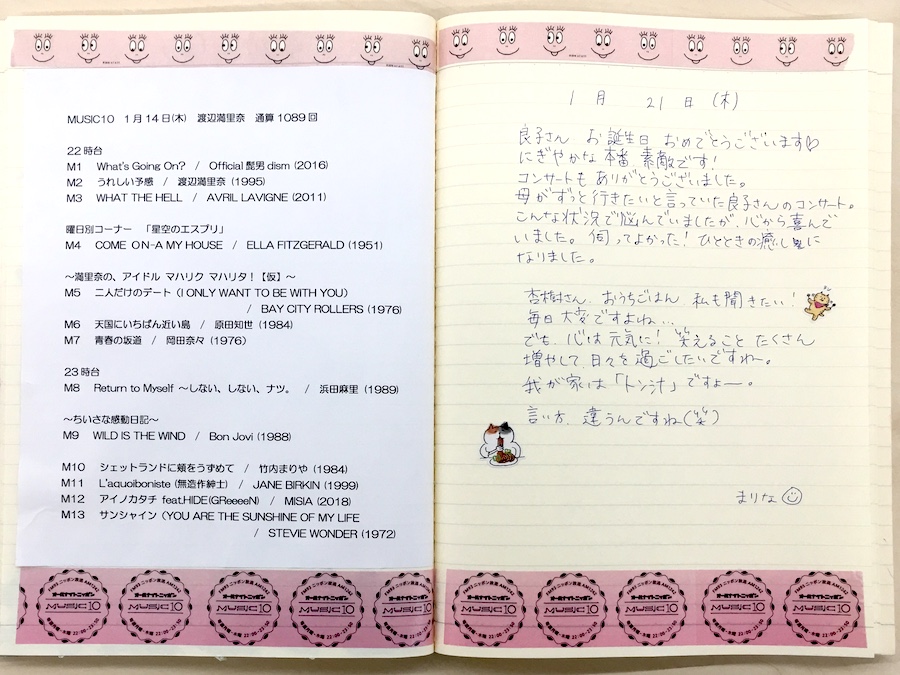 MUSIC10 1月14日(木) 渡辺満里奈 通算1089回
22時台
M1 What's Going On? / Official髭男dism (2016)
M2 うれしい予感 / 渡辺満里奈 (1995)
M3 WHAT THE HELL / AVRIL LAVIGNE (2011)
曜日別コーナー 「星空のエスプリ」
M4 COME ON-A MY HOUSE / ELLA FITZGERALD (1951)
～満里奈の、アイドル マハリク マハリタ！【仮】～
M5 二人だけのデート (I ONLY WANT TO BE WITH YOU)
/ BAY CITY ROLLERS (1976)
M6 天国にいちばん近い島 / 原田知世 (1984)
M7 青春の坂道 / 岡田奈々 (1976)
23時台
M8 Return to Myself ～しない、しない、ナツ。 / 浜田麻里 (1989)
～ちいさな感動日記～
M9 WILD IS THE WIND / Bon Jovi (1988)
M10 シェットランドに頬をうずめて / 竹内まりや (1984)
M11 L'aquoiboniste (無造作紳士) / JANE BIRKIN (1999)
M12 アイノカタチ feat.HIDE(GReeeeN) / MISIA (2018)
M13 サンシャイン (YOU ARE THE SUNSHINE OF MY LIFE
/ STEVIE WONDER (1972)
1月 21日 (木)
良子さん お誕生日 おめでとうございます♡
にぎやかな本番 素敵です！
コンサートも ありがとうございました。
母がずっと行きたいと言っていた良子さんのコンサート。
こんな状況で悩んでいましたが、心から喜んで
いました。伺ってよかった！ ひとときの癒しに
なりました。
杏樹さん、おうちごはん 私も聞きたい！
毎日大変ですよね...
でも、心は元気に！ 笑えること たくさん
増やして、日々を過ごしたいですねー。
我が家は「トン汁」ですよー。
言い方、違うんですね(笑)
まりな
FM93 ニッポン放送 AM1242
オールナイトニッポン
MUSIC10
22:00-23:50